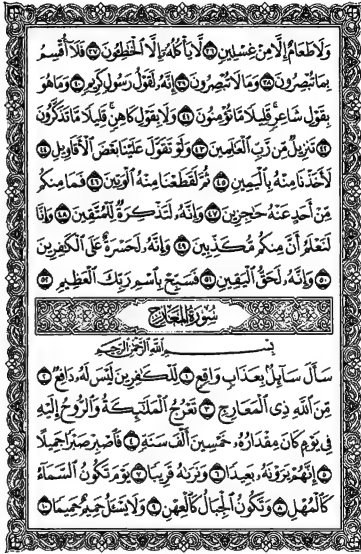 وَلَا طَعَامٌ إِلَّا مِنْ غِسْلِينٍ ٣٦ لَّا يَأْكُلُهُۥٓ إِلَّا ٱلْخَٰطِـُٔونَ ٣٧ فَلَآ أُقْسِمُ
بِمَا تُبْصِرُونَ ٣٨ وَمَا لَا تُبْصِرُونَ ٣٩ إِنَّهُۥ لَقَوْلُ رَسُولٍ كَرِيمٍ ٤٠ وَمَا هُوَ
بِقَوْلِ شَاعِرٍ ۚ قَلِيلًا مَّا تُؤْمِنُونَ ٤١ وَلَا بِقَوْلِ كَاهِنٍ ۚ قَلِيلًا مَّا تَذَكَّرُونَ
٤٢ تَنزِيلٌ مِّن رَّبِّ ٱلْعَٰلَمِينَ ٤٣ وَلَوْ تَقَوَّلَ عَلَيْنَا بَعْضَ ٱلْأَقَاوِيلِ ٤٤
لَأَخَذْنَا مِنْهُ بِٱلْيَمِينِ ٤٥ ثُمَّ لَقَطَعْنَا مِنْهُ ٱلْوَتِينَ ٤٦ فَمَا مِنكُم
مِّنْ أَحَدٍ عَنْهُ حَٰجِزِينَ ٤٧ وَإِنَّهُۥ لَتَذْكِرَةٌ لِّلْمُتَّقِينَ ٤٨ وَإِنَّا
لَنَعْلَمُ أَنَّ مِنكُم مُّكَذِّبِينَ ٤٩ وَإِنَّهُۥ لَحَسْرَةٌ عَلَى ٱلْكَٰفِرِينَ
٥٠ وَإِنَّهُۥ لَحَقُّ ٱلْيَقِينِ ٥١ فَسَبِّحْ بِٱسْمِ رَبِّكَ ٱلْعَظِيمِ ٥٢
سُورَةُ المَعَارِج
بِسْمِ ٱللَّهِ ٱلرَّحْمَٰنِ ٱلرَّحِيمِ
سَأَلَ سَآئِلٌۢ بِعَذَابٍ وَاقِعٍ ١ لِّلْكَٰفِرِينَ لَيْسَ لَهُۥ دَافِعٌ ٢
مِّنَ ٱللَّهِ ذِى ٱلْمَعَارِجِ ٣ تَعْرُجُ ٱلْمَلَٰٓئِكَةُ وَٱلرُّوحُ إِلَيْهِ
فِى يَوْمٍ كَانَ مِقْدَارُهُۥ خَمْسِينَ أَلْفَ سَنَةٍ ٤ فَٱصْبِرْ صَبْرًا جَمِيلًا
٥ إِنَّهُمْ يَرَوْنَهُۥ بَعِيدًا ٦ وَنَرَىٰهُ قَرِيبًا ٧ يَوْمَ تَكُونُ ٱلسَّمَآءُ
كَٱلْمُهْلِ ٨ وَتَكُونُ ٱلْجِبَالُ كَٱلْعِهْنِ ٩ وَلَا يَسْـَٔلُ حَمِيمٌ حَمِيمًا ١٠